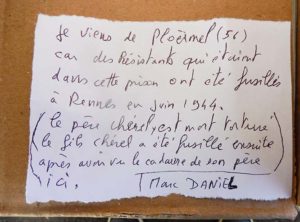 Je viens de Ploërmel (56)
car des Résistants qui étaient
dans cette prison ont été fusillés
à Rennes en juin 1944.
(le père chérel est mort torturé
le fils chérel a été fusillé ensuite
après avoir vu le cadavre de son père
ici.)
Marc DANIEL